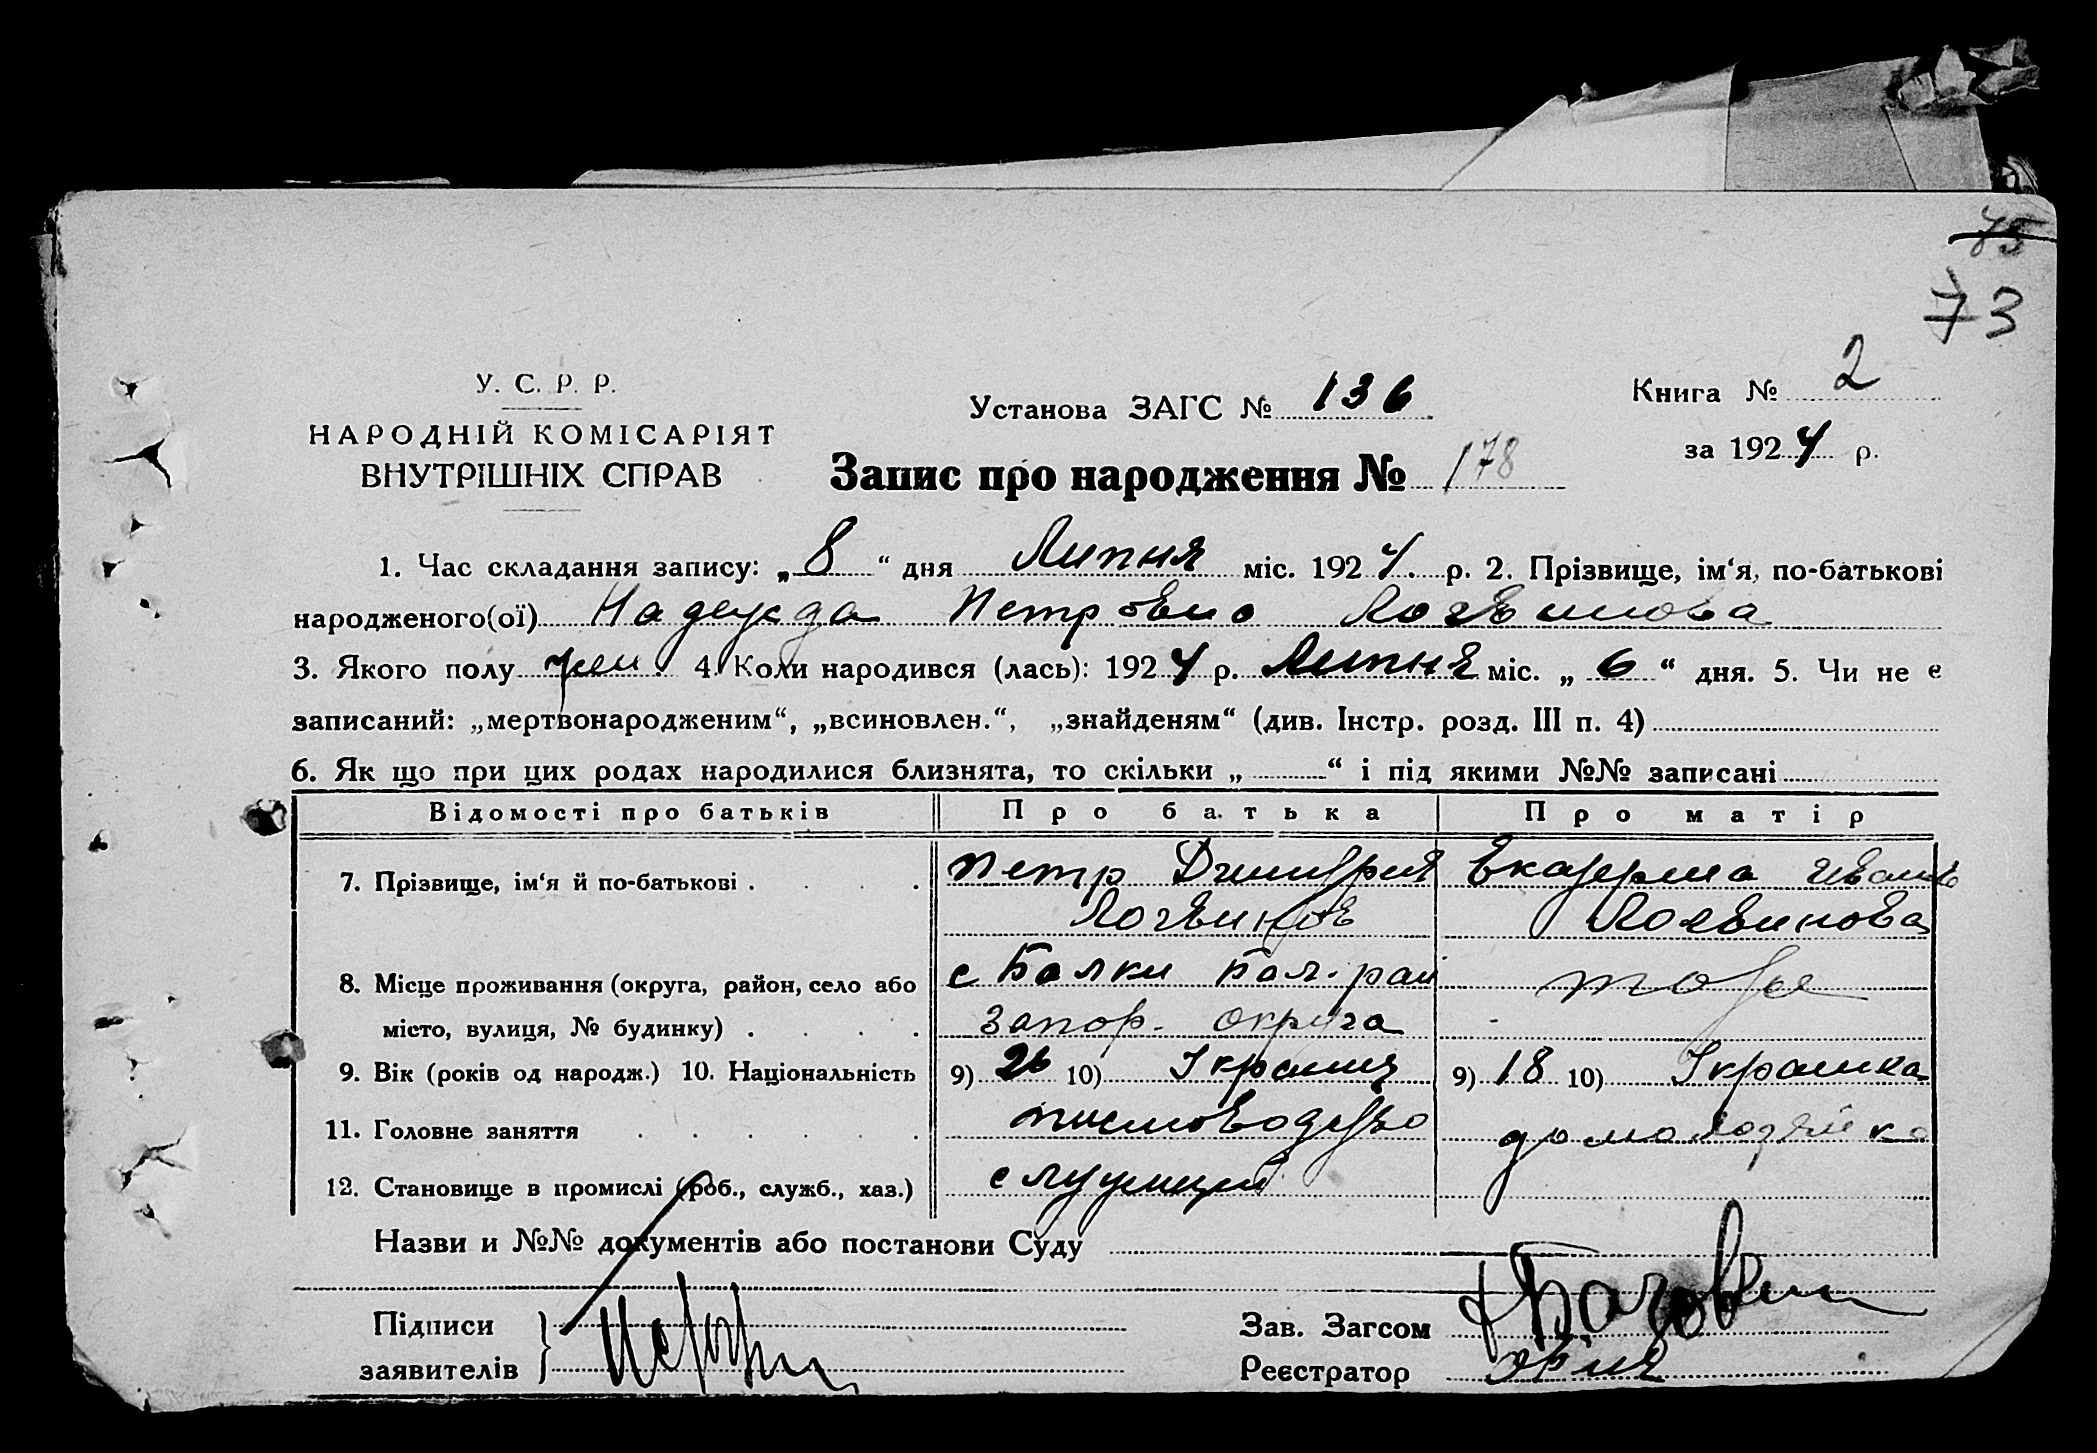 75
73
У. С. Р. Р.
НАРОДНІЙ КОМІСАРІЯТ
ВНУТРІШНІХ СПРАВ
Установа ЗАГС № 136
Книга № 2
за 1924 р.
Запис про народження № 178
1. Час складання запису: „8“ дня Липня міс. 1924 р. 2. Прізвище, ім‘я, по-батькові
народженого(ої) Надежда Петровна Логвинова
3. Якого полу жен. 4. Коли народився (лась): 1924 р. Липня міс. „6“ дня. 5. Чи не є
записаний: „мертвонародженим“, „всиновлен.“, „знайденям“ (див. Інстр. розд. III п. 4)
6. Як що при цих родах народилися близнята, то скільки „ “ і під якими №№ записані
Відомості про батьків Про батька Про матір
7. Прізвище, ім‘я й по-батькові Петр Дмитрия Екатерина Иванов
Логвинов Логвинова
8. Місце проживання (округа, район, село або с Балки Бал. рай тоже
місто, вулиця, № будинку) Запор. округа
9. Вік (років од народж.) 10. Національність 9) 26 10) Украинец 9) 18 10) Украинка
11. Головне заняття письмоводство домохозяйка
12. Становище в промислі (роб., служб., хаз.) служащий
Назви и №№ документів або постанови Суду
Підписи
заявителів
Зав. Загсом
Реєстратор